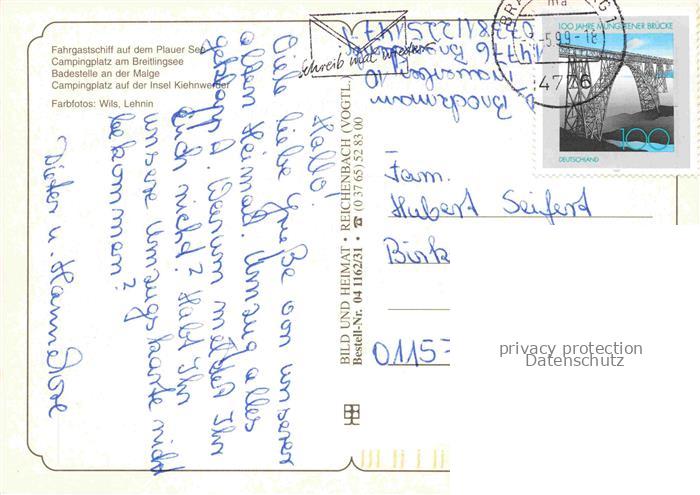 Fahrgastschiff auf dem Plauer See
Campingplatz am Breitlingsee
Badestelle an der Malge
Campingplatz auf der Insel Kiehnwerder
Farbfotos: Wils, Lehnin
Hallo!
Viele liebe Grüße von unserer
alten Heimat. Umzug alles
geklappt. Warum meldet Ihr
Euch nicht? Habt Ihr
unsere Umzugskarte nicht
bekommen?
Dieter u. Hannelore
BILD UND HEIMAT • REICHENBACH (VOGTL.
Bestell-Nr. 04 1162/31 • ☎ (0 37 65) 52 83 00
Schreib mal wieder
D. Brockmann
10
14776
03381/225147
BRA 1
ma
5.99-18
14776
100 JAHRE MÜNGSTENER BRÜCKE
100
DEUTSCHLAND
Fam.
Hubert Seifert
Birk
0115
privacy protection
Datenschutz